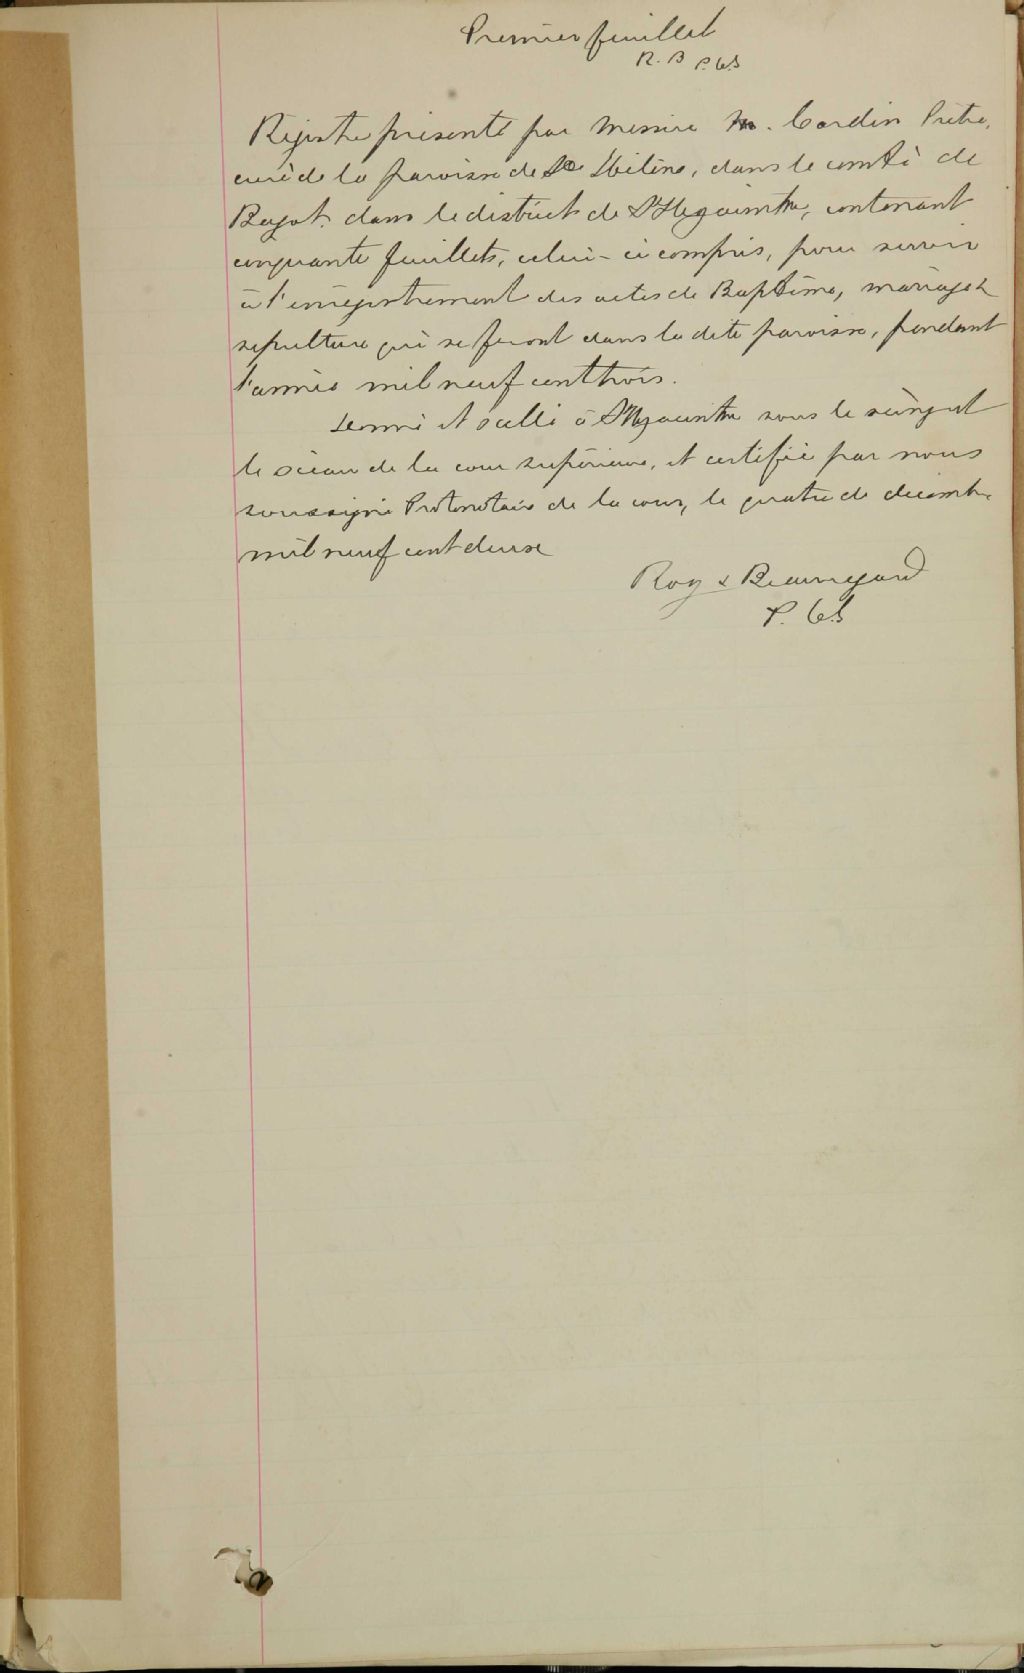 Premier feuillet
R. B P.C.S
Registre présenté par Messire M. Cardin Prêtre,
curé de la paroisse de Ste Hélène, dans le comté de
Bagot. dans le district de St Hyacinthe, contenant
cinquante feuillets, celui-ci compris, pour servir
à l'enregistrement des actes de Baptême, mariage &
sepulture qui se feront dans la dite paroisse, pendant
l'année mil neuf cent trois.
Donné et scellé à St Hyacinthe sous le seing et
le sceau de la cour supérieure, et certifié par nous
soussigné Protonotaire de la cour, le quatre de décembre
mil neuf cent deux
Roy & Beauregard
P. C.S